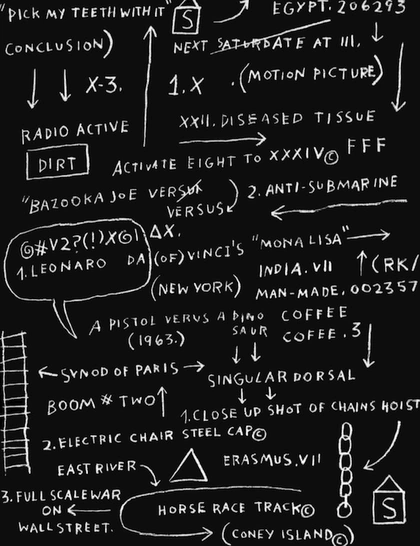 "PICK MY TEETH WITH IT"
S
EGYPT. 206293
CONCLUSION)
NEXT SATURDATE AT III.
X-3.
1.X
.(MOTION PICTURE)
XXII. DISEASED TISSUE
RADIO ACTIVE
DIRT
ACTIVATE EIGHT TO XXXIV©
FFF
"BAZOOKA JOE VERSUX
VERSUS
2. ANTI-SUBMARINE
@#V2?(!)X©I
ΔX.
1. LEONARO DA (OF) VINCI'S "MONA LISA"
INDIA. VII
(RK/
(NEW YORK)
MAN-MADE. 002357
A PISTOL VERUS A DINO
SAUR
COFFEE
(1963.)
COFFEE .3
SYNOD OF PARIS
SINGULAR DORSAL
BOOM # TWO
1. CLOSE UP SHOT OF CHAINS HOIST
2. ELECTRIC CHAIR STEEL CAP©
EAST RIVER
ERASMUS. VII
3. FULL SCALE WAR
ON
WALL STREET.
HORSE RACE TRACK©
S
(CONEY ISLAND©)